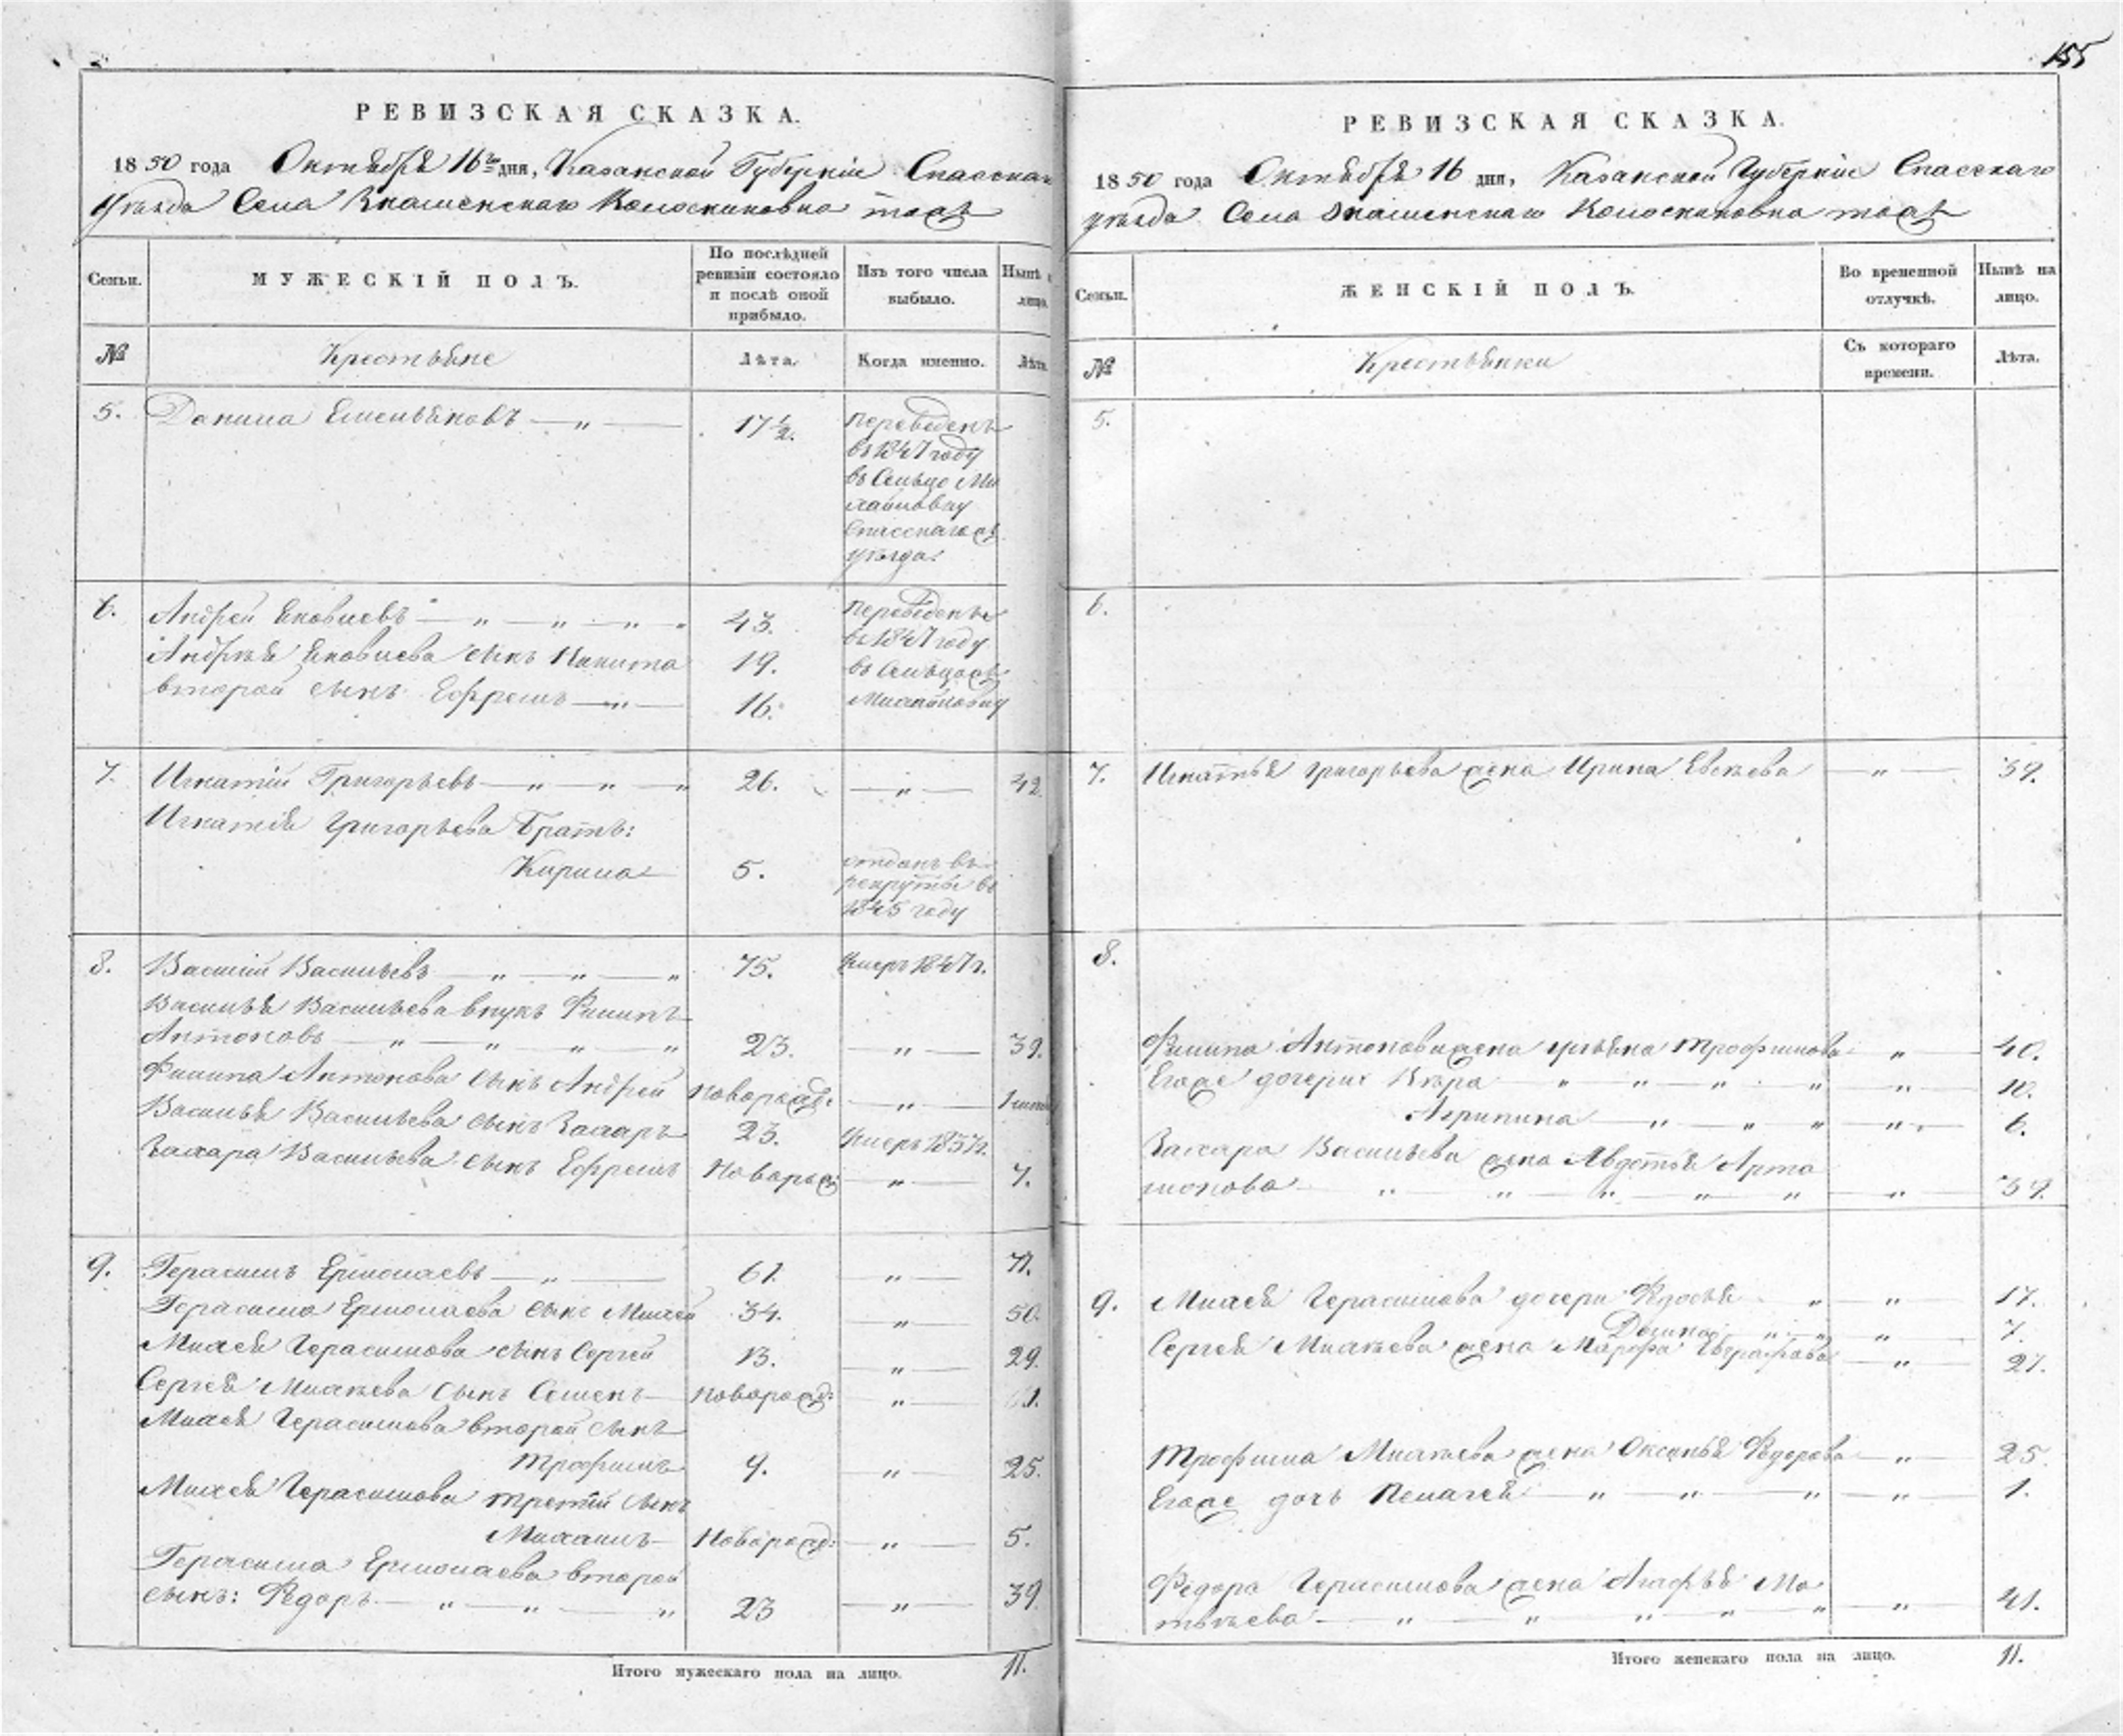 155
РЕВИЗСКАЯ СКАЗКА.
1850 года Октября 16го дня, Казанской Губернии Спасскаго
уѣзда Села Знаменскаго тожъ
Семьи. МУЖЕСКІЙ ПОЛЪ. По послѣдней ревизіи состояло и послѣ оной прибыло. Изъ того числа выбыло. Нынѣ лицо.
№ Крестьяне Лѣта. Когда именно. Лѣта
5. Данила Емельяновъ — " — 17 1/2. переведенъ
въ 1847 году
въ Сельцо Ми
хайловку
Спасскаго
уѣзда.
6. Андрей Яковлевъ — " — " — " — " 43. переведены
Андрея Яковлева сынъ Никита 19. в 1847 году
второй сынъ Ефремъ — " — 16. въ Сельцо
Михайловку
7. Игнатій Григорьевъ — " — " — " 26. — " — 42.
Игнатія Григорьева братъ:
Кирила 5. отданъ въ
рекруты въ
1845 году
8. Василій Васильевъ — " — " — " 75. умеръ 1847 г.
Василья Васильева внукъ Филипъ
Антоновъ — " — " — " — " 23. — " — 39.
Филипа Антонова сынъ Андрей новорожд: — " — 1
Василья Васильева сынъ Захаръ 23. умеръ 1837 г.
Захара Васильева сынъ Ефремъ Новорож: — " — 7.
9. Герасимъ Ермолаевъ — " — 61. " — 77.
Герасима Ермолаева сынъ Михей 34. " — 50.
Михея Герасимова сынъ Сергей 13. " — 29.
Сергея Михѣева сынъ Семенъ — новорожд: " —
Михея Герасимова второй сынъ
Трофимъ 9. — " — 25.
Михея Герасимова третій сынъ
Михаилъ — Новорожд: — " — 5.
Герасима Ермолаева второй
сынъ: Федоръ — " — " — " 23 — " — 39.
Итого мужескаго пола на лицо. 11.
РЕВИЗСКАЯ СКАЗКА.
1850 года Октября 16 дня, Казанской Губернии Спасскаго
уѣзда Села Знаменскаго тожъ
Семьи. ЖЕНСКІЙ ПОЛЪ. Во временной отлучкѣ. Нынѣ на лицо.
№ Крестьянки Съ котораго времени. Лѣта.
5.
6.
7. Игнатья Григорьева жена Ирина Евсѣева — " — 39.
8.
Филипа Антонова жена Ульяна Трофимова — " — 40.
Егоже дочери: Вѣра " — " — " — " — " — 10.
Агрипина — " — " — " — " — 6.
Захара Васильева жена Авдотья Арта
монова — " — " — " — " — " — " — 39.
9. Михея Герасимова дочери Федосья " — " — 17.
Домна " " — " — 7.
Сергея Михѣева жена Марфа Евграфова — " — 27.
Трофима Михѣева жена Оксинья Федорова — " — 25.
Егоже дочь Пелагея — " — " — " — " — 1.
Федора Герасимова жена Агафья Ма
твѣева — " — " — " — " — " — " — 41.
Итого женскаго пола на лицо. 11.